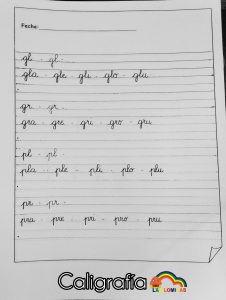 Fecha:
gl - gl -
gla - gle - gli - glo - glu
gr - gr -
gra - gre - gri - gro - gru
pl - pl -
pla - ple - pli - plo - plu
pr - pr -
pra - pre - pri - pro - pru
Caligrafía